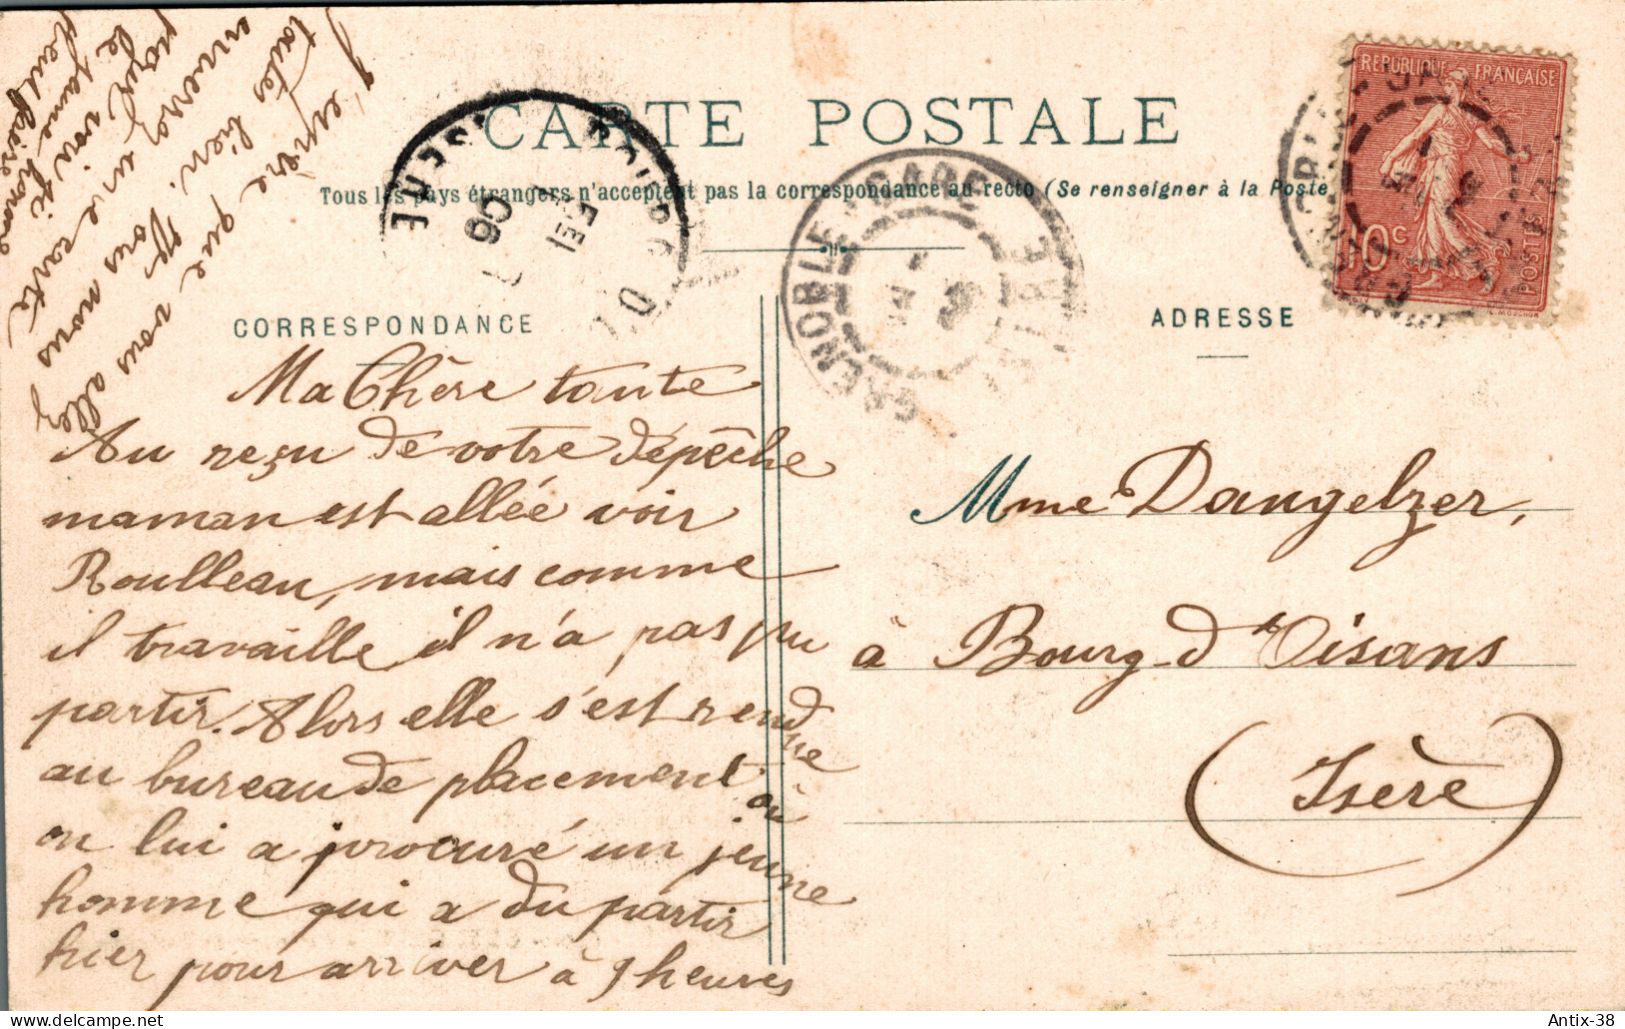 CARTE POSTALE
Tous les pays étrangers n'acceptent pas la correspondance au recto (Se renseigner à la Poste
RÉPUBLIQUE FRANÇAISE
10c
POSTES
L. MOUCHON
GRENOBLE GARE
ISÈRE
ISÈRE
06
CORRESPONDANCE
ADRESSE
Ma Chère tante
Au reçu de votre dépêche
maman est allée voir
Roulleau, mais comme
il travaille, il n'a pas pu
partir. Alors elle s'est rendue
au bureau de placement où
on lui a procuré un jeune
homme qui a du partir
hier pour arriver à 9 heures
J'espère que vous allez
toutes bien. Vous nous
enverrez une carte
pour voir si
le jeune homme
peut faire
Mme Dangelzer,
à Bourg-d'Oisans
(Isère)
Antix-38